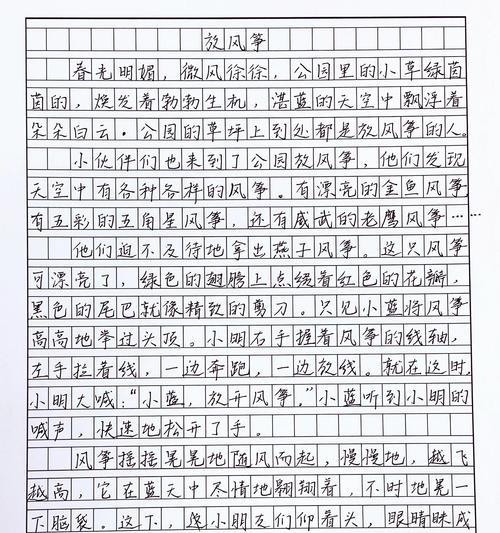 放风筝
春光明媚，微风徐徐，公园里的小草绿茵
茵的，焕发着勃勃生机，湛蓝的天空中飘浮着
朵朵白云。公园的草坪上到处都是放风筝的人。
小伙伴们也来到了公园放风筝，他们发现
天空中有各种各样的风筝。有漂亮的金鱼风筝，
有五彩的五角星风筝，还有威武的老鹰风筝……
他们迫不及待地拿出燕子风筝。这只风筝
可漂亮了，绿色的翅膀上点缀着红色的花瓣，
黑色的尾巴就像精致的剪刀。只见小蓝将风筝
高高地举过头顶。小明右手握着风筝的线轴，
左手拉着线，一边奔跑，一边放线。就在这时，
小明大喊：“小蓝，放开风筝。”小蓝听到小明的
喊声，快速地松开了手。
风筝摇摇晃晃地随风而起，慢慢地，越飞
越高，它在蓝天中尽情地翱翔着，不时地晃一
下脑袋。这下，像小朋友们仰着头，眼睛眯成